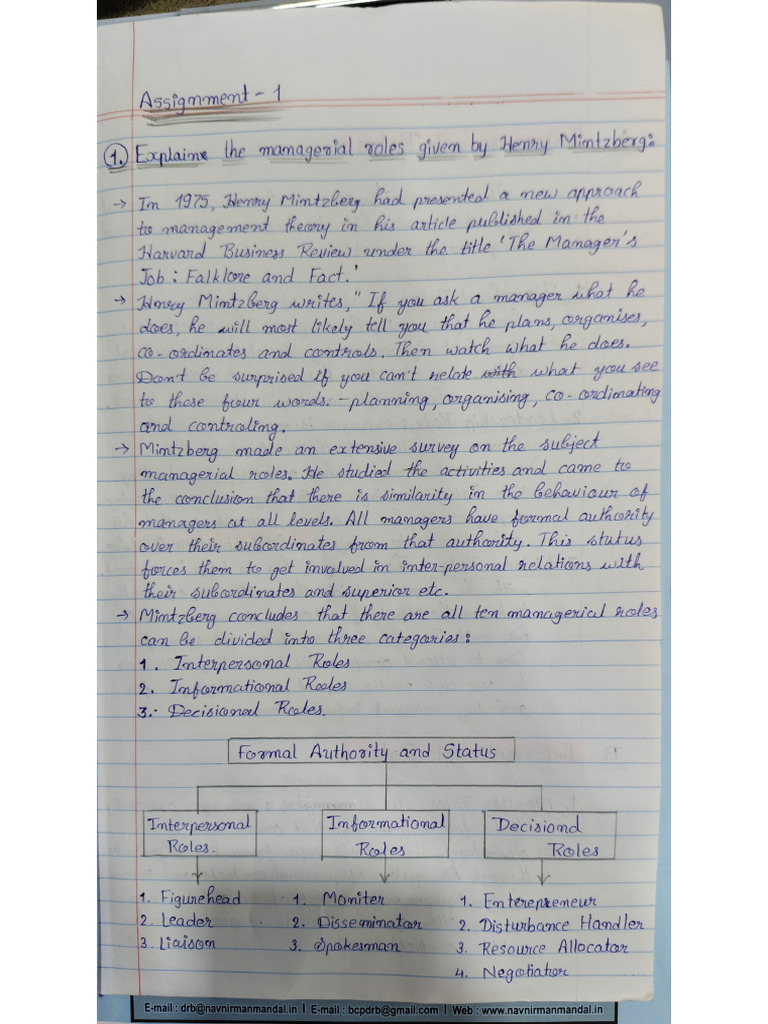 Assignment - 1
1. Explain the managerial roles given by Henry Mintzberg:
→ In 1975, Henry Mintzberg had presented a new approach
to management theory in his article published in the
Harvard Business Review under the title 'The Manager's
Job : Falklore and Fact.'
→ Henry Mintzberg writes, " If you ask a manager what he
does, he will most likely tell you that he plans, organises,
co-ordinates and controls. Then watch what he does.
Don't be surprised if you can't relate with what you see
to these four words. - planning, organising, co-ordinating
and controling.
→ Mintzberg made an extensive survey on the subject
managerial roles. He studied the activities and came to
the conclusion that there is similarity in the behaviour of
managers at all levels. All managers have formal authority
over their subordinates from that authority. This status
forces them to get involved in inter-personal relations with
their subordinates and superior etc.
→ Mintzberg concludes that there are all ten managerial roles
can be divided into three categories :
1. Interpersonal Roles
2. Informational Roles
3. Decisional Roles.
Formal Authority and Status
Interpersonal Roles.
Informational Roles
Decisional Roles
1. Figurehead
2. Leader
3. Liaison
1. Moniter
2. Disseminator
3. Spokesman
1. Enterepreneur
2. Disturbance Handler
3. Resource Allocator
4. Negotiator
E-mail : drb@navnirmanmandal.in | E-mail : bcpdrb@gmail.com | Web : www.navnirmanmandal.in